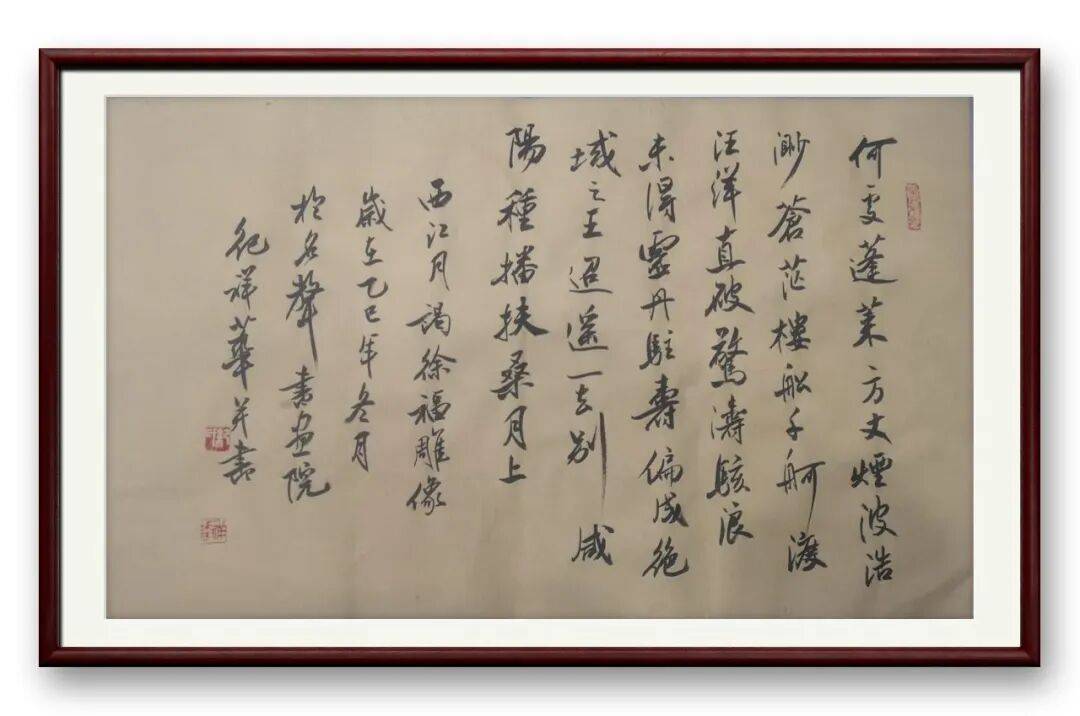 何处蓬莱方丈煙波浩
渺蒼茫樓船千舸渡
汪洋真破驚濤駭浪
未得靈丹駐壽偏成絶
域之王迢遥一去别咸
陽種播扶桑月上
西江月謁徐福雕像
歲在乙巳年冬月
於名聲書画院
祥華并書